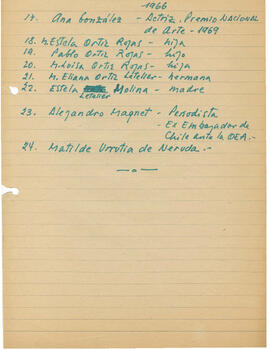 1966
17. Ana González - Actriz, Premio Nacional
de Arte - 1969
18. M. Estela Ortiz Rojas - hija
19. Pablo Ortiz Rojas - hijo
20. M. Luisa Ortiz Rojas - hija
21. M. Eliana Ortiz Lételier - hermana
22. Estela Letelier Molina - madre
23. Alejandro Magnet - Periodista
- Ex Embajador de
Chile ante la OEA.-
24. Matilde Urrutia de Neruda.-